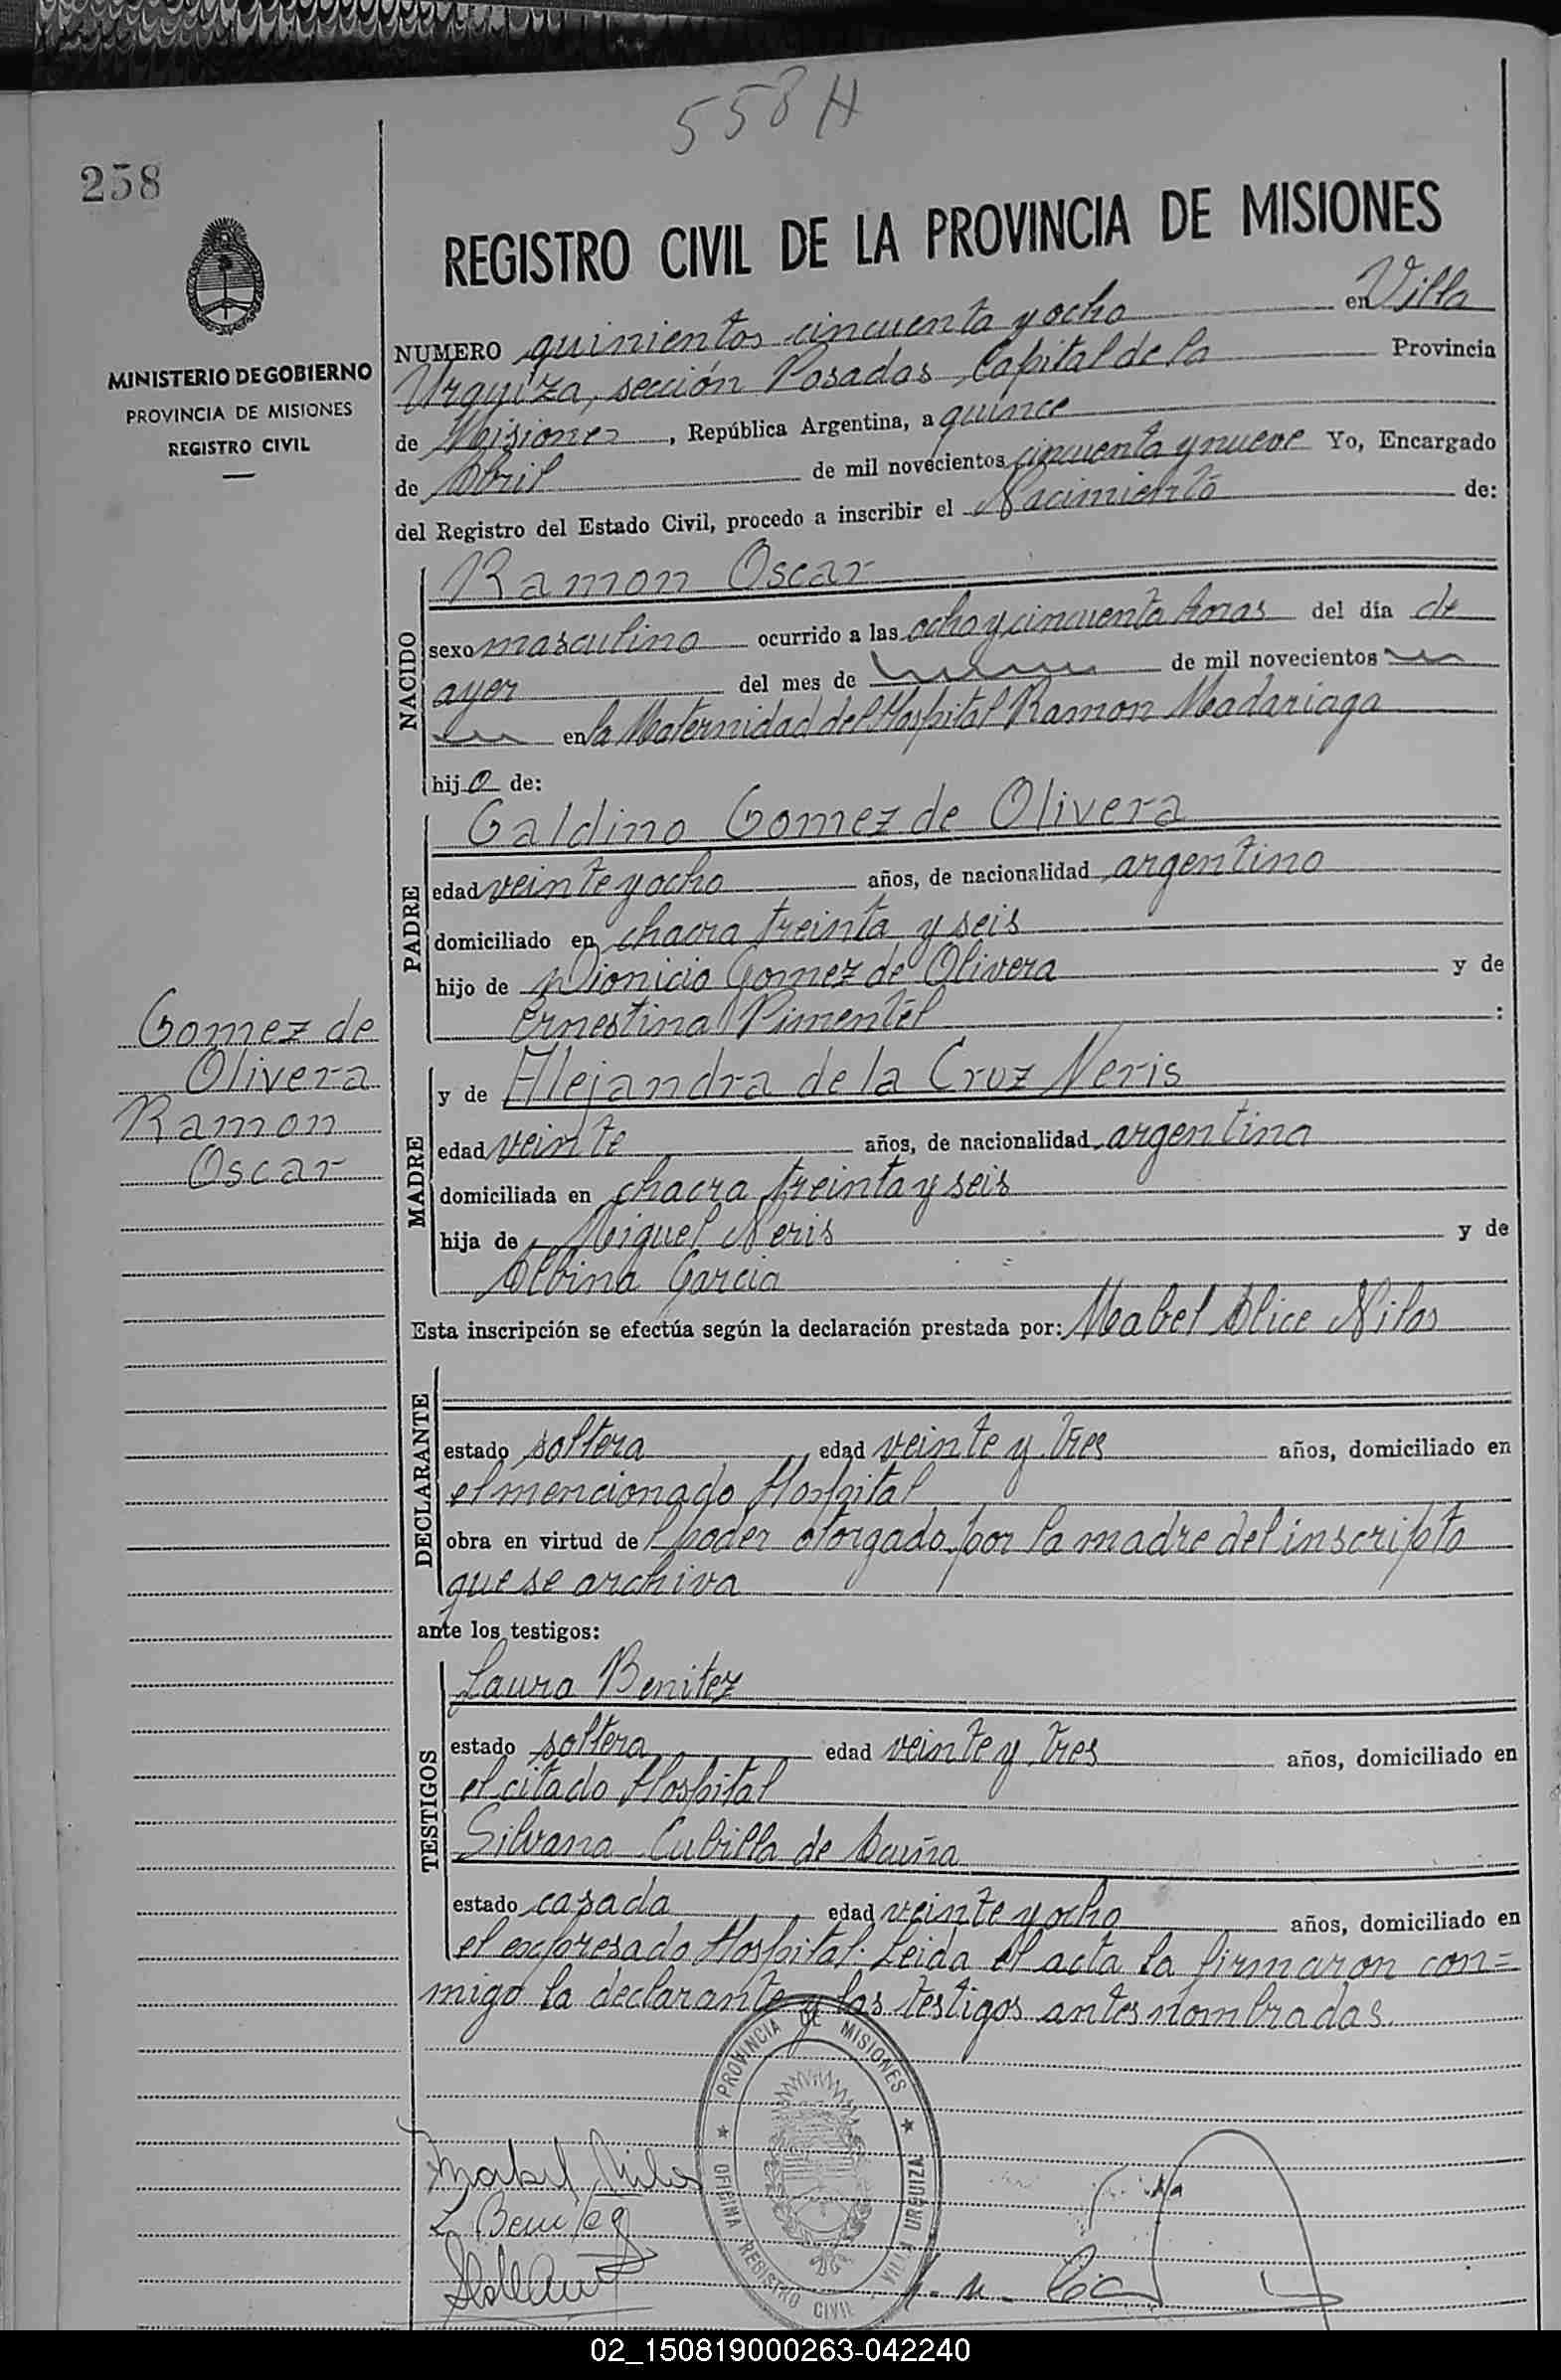 558 H
258
REGISTRO CIVIL DE LA PROVINCIA DE MISIONES
MINISTERIO DE GOBIERNO
PROVINCIA DE MISIONES
REGISTRO CIVIL
NUMERO quinientos cincuenta y ocho en Villa
Urquiza, sección Posadas, Capital de la Provincia
de Misiones, República Argentina, a quince
de Abril de mil novecientos cincuenta y nueve Yo, Encargado
del Registro del Estado Civil, procedo a inscribir el Nacimiento de:
NACIDO
Ramon Oscar
sexo masculino ocurrido a las ocho y cincuenta horas del día de
ayer del mes de de mil novecientos
en la Maternidad del Hospital Ramon Madariaga
hijo de:
PADRE
Galdino Gomez de Olivera
edad veinte y ocho años, de nacionalidad argentino
domiciliado en chacra treinta y seis
hijo de Dionicio Gomez de Olivera y de
Ernestina Pimentel :
Gomez de
Olivera
Ramon
Oscar
MADRE
y de Alejandra de la Cruz Neris
edad veinte años, de nacionalidad argentina
domiciliada en chacra treinta y seis
hija de Miguel Neris y de
Albina Garcia
Esta inscripción se efectúa según la declaración prestada por: Mabel Alice Nilos
DECLARANTE
estado soltera edad veinte y tres años, domiciliado en
el mencionado Hospital
obra en virtud de l poder otorgado por la madre del inscripto
que se archiva
ante los testigos:
TESTIGOS
Laura Benitez
estado soltera edad veinte y tres años, domiciliado en
el citado Hospital
Silvana Cubilla de
estado casada edad veinte y ocho años, domiciliado en
el expresado Hospital. Leida el acta la firmaron con=
migo la declarante y las testigos antes nombradas.
PROVINCIA DE MISIONES
OFICINA REGISTRO CIVIL VILLA URQUIZA
Mabel Nilos
L Benitez
02_150819000263-042240